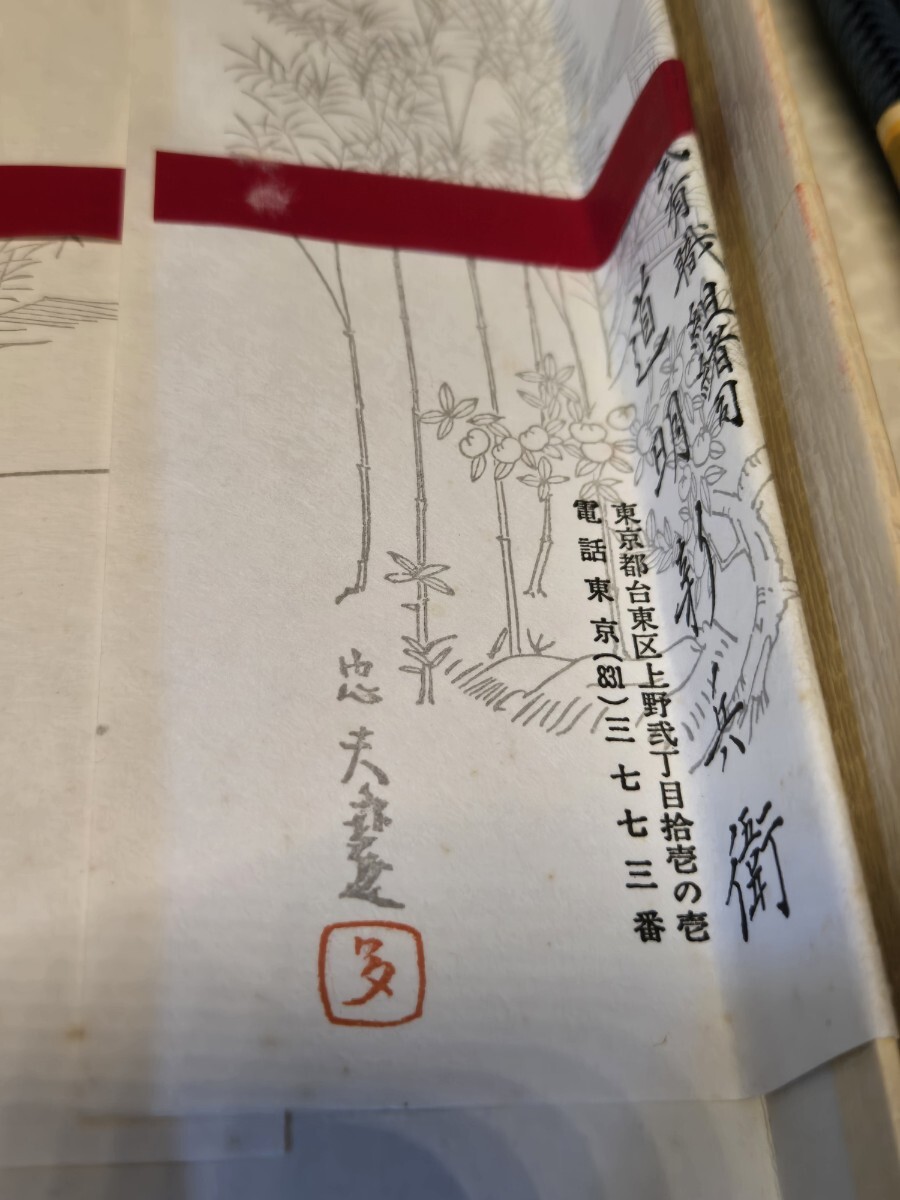 有職組紐司
道明新兵衛
東京都台東区上野弐丁目拾壱の壱
電話東京(831)三七七三番
忠夫